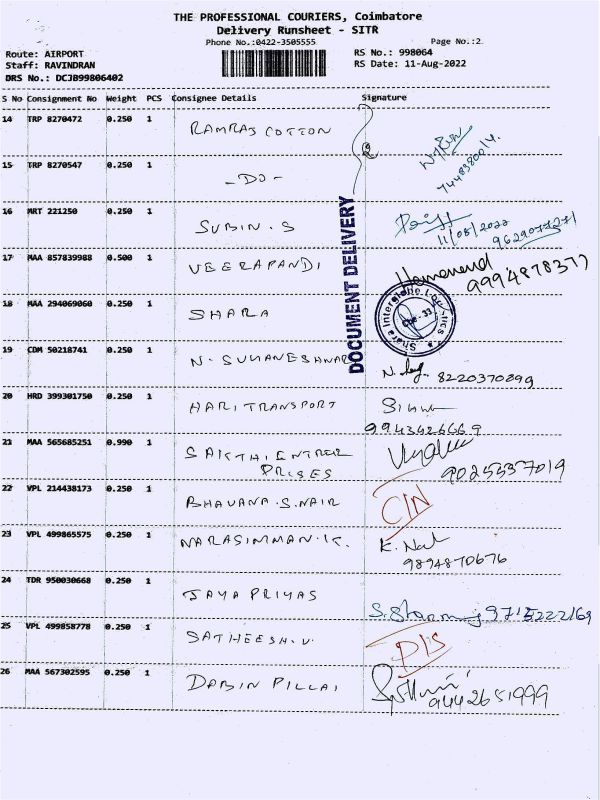 THE PROFESSIONAL COURIERS, Coimbatore
Delivery Runsheet - SITR
Phone No.:0422-3505555 Page No.:2
Route: AIRPORT RS No.: 998064
Staff: RAVINDRAN RS Date: 11-Aug-2022
DRS No.: DCJB99806402
S No Consignment No Weight PCS Consignee Details Signature
14 TRP 8270472 0.250 1 RAMRAJ COTTON
15 TRP 8270547 0.250 1 -DO-
16 MRT 221250 0.250 1 SUBIN.S
11/08/2022
17 MAA 857839988 0.500 1 VEERAPANDI
9994878377
18 MAA 294069060 0.250 1 SHARA
DOCUMENT DELIVERY
19 CDM 50218741 0.250 1 N. SUMANESHWAR
8220370899
20 HRD 399301750 0.250 1 HARI TRANSPORT
9943426669
21 MAA 565685251 0.990 1 SAKTHI ENTRER
PRISES
9025557019
22 VPL 214438173 0.250 1 BHAVANA.S.NAIR CIN
23 VPL 499865575 0.250 1 NARASIMMAN.K.
9894870676
24 TDR 950030668 0.250 1 JAYA PRIYAS
9715222169
25 VPL 499858778 0.250 1 SATHEESH.V. DIS
26 MAA 567302595 0.250 1 DABIN PILLAI
9442651999